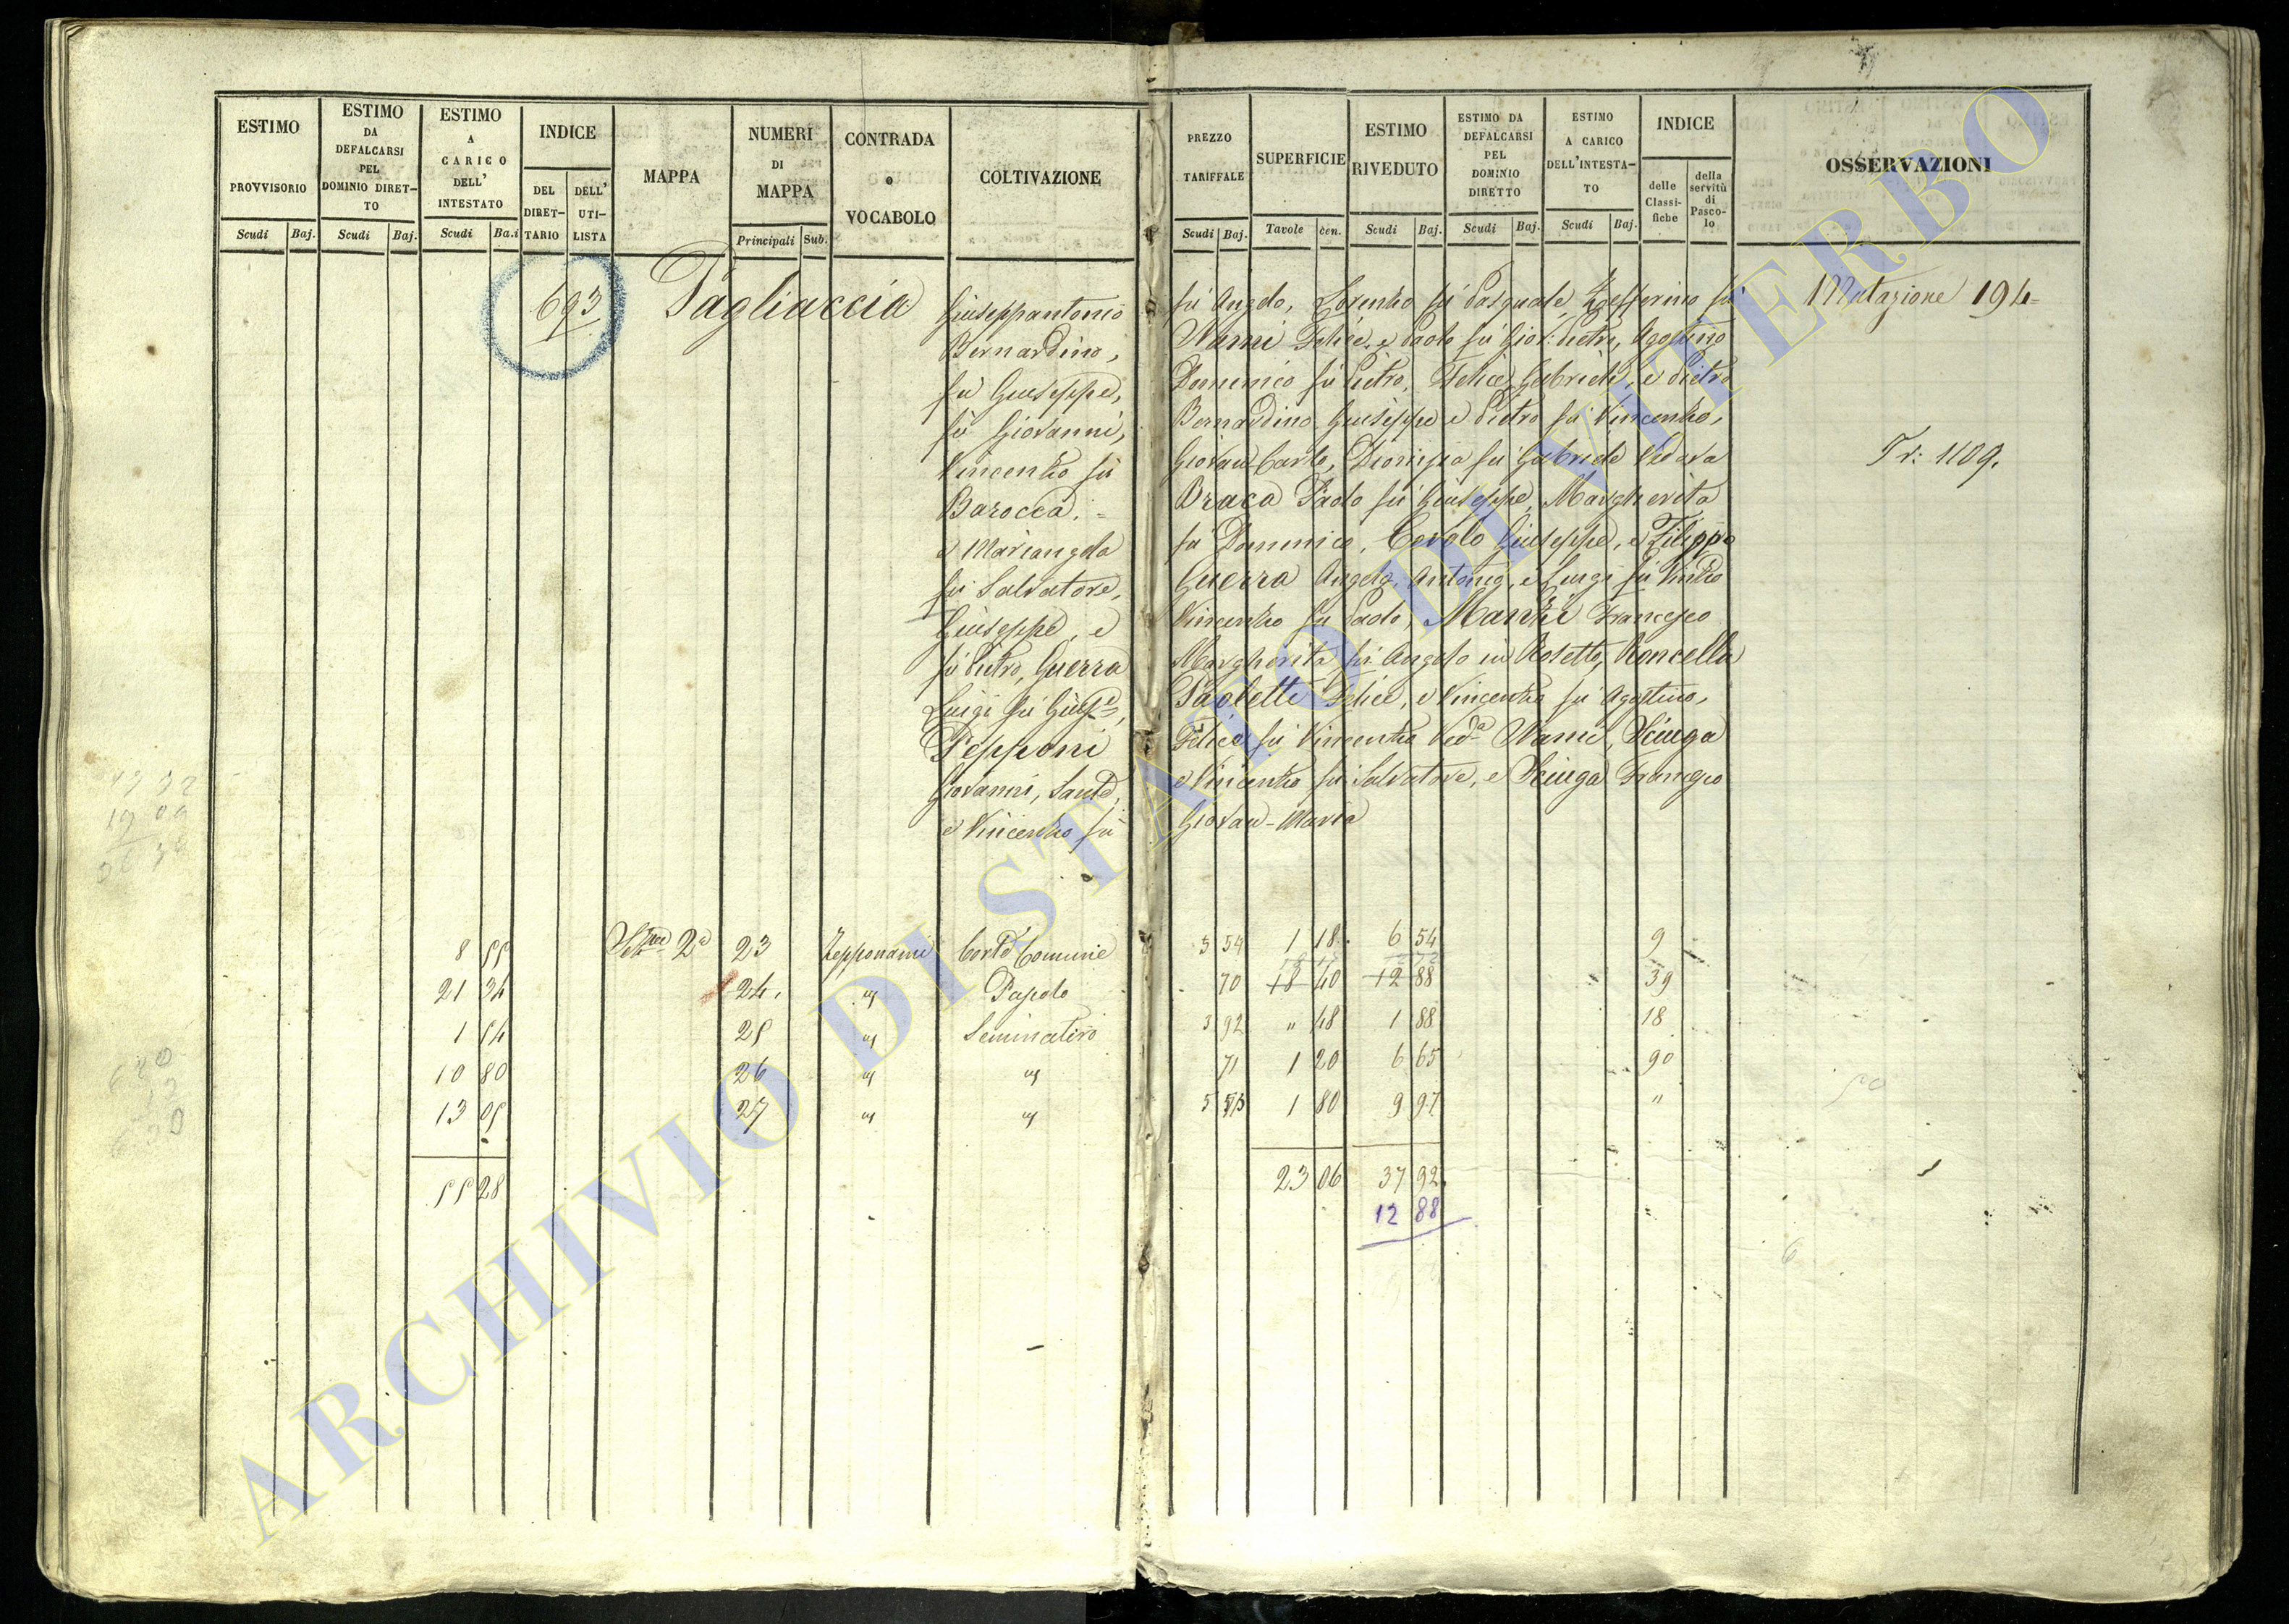 ESTIMO PROVVISORIO Scudi Baj.
ESTIMO DA DEFALCARSI PEL DOMINIO DIRET-TO Scudi Baj.
ESTIMO A CARICO DELL' INTESTATO Scudi Ba.i
INDICE DEL DIRET-TARIO DELL' UTI-LISTA
MAPPA
NUMERI DI MAPPA Principali Sub.
CONTRADA o VOCABOLO
COLTIVAZIONE
PREZZO TARIFFALE Scudi Baj.
SUPERFICIE Tavole cen.
ESTIMO RIVEDUTO Scudi Baj.
ESTIMO DA DEFALCARSI PEL DOMINIO DIRETTO Scudi Baj.
ESTIMO A CARICO DELL'INTESTA-TO Scudi Baj.
INDICE delle Classi-fiche della servitù di Pasco-lo
OSSERVAZIONI
693 Pagliaccia Giuseppantonio fù Angelo, Lorenzo fù Pasquale, Zefferino fù Mutazione 194
Bernardino, Nanni Felice, e Paolo fù Giov: Pietro, Agostino
fù Giuseppe, Domenico fù Pietro, Felice, Gabriele, e Pietro
fù Giovanni, Bernardino, Giuseppe e Pietro fù Vincenzo,
Vincenzo fù Giovan Carlo, Dionisia fù Gabriele Vedova Tr: 1109.
Barocca, = Braca Paolo fù Giuseppe, Margherita
e Mariangela fù Domenico, Cerolo Giuseppe, e Filippo
fù Salvatore, Guerra Angelo, Antonio, e Luigi fù
Giuseppe, e Vincenzo fù Paolo, Manzi Francesco
fù Pietro, Guerra Margherita fù Angelo in Rosetto, Roncella
Luigi fù Giuse, Paoletti Felice, e Vincenzo fù Agostino,
Pepponi Felice fù Vincenzo Veda Nanni, Sciuga
Giovanni, Sante, e Vincenzo fù Salvatore, e Sciuga Francesco
e Vincenzo fù Giovan-Maria
8 55 2a 23 Zepponami Corte Comune 5 54 1 18 6 54 9
21 34 24 " Pascolo 70 18 40 12 88 39
1 54 25 " Seminativo 3 92 " 48 1 88 18
10 80 26 " " 71 1 20 6 65 90
13 05 27 " " 5 1 80 9 97 "
55 28 23 06 37 92
12 88
ARCHIVIO DI STATO DI VITERBO